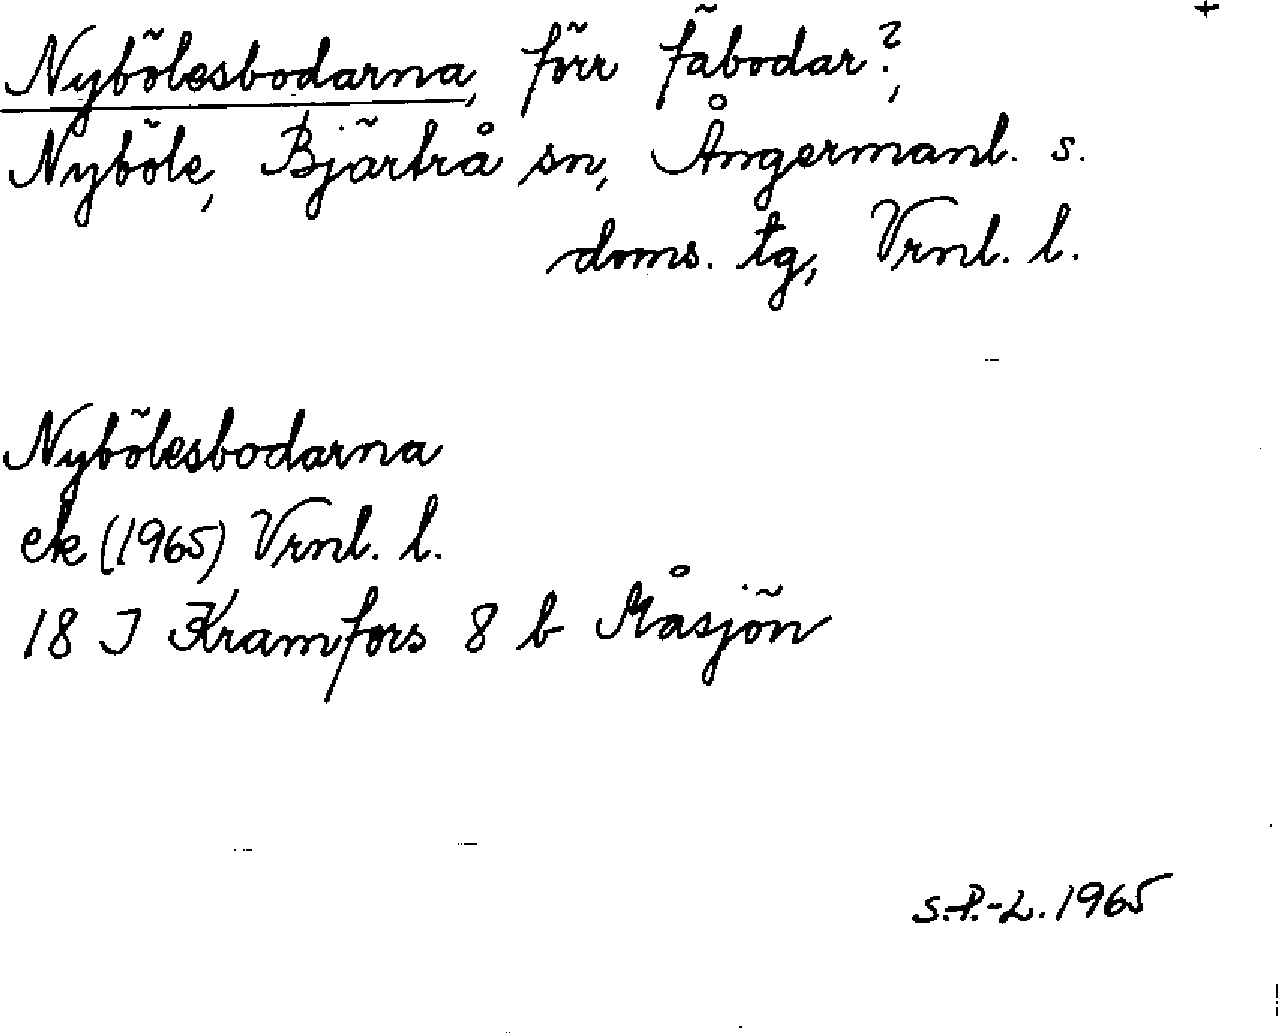 +
Nybölesbodarna, förr fäbodar?,
Nyböle, Bjärtrå sn, Ångermanl. s.
doms. tg, Vrnl. l.
Nybölesbodarna
ek (1965) Vrnl. l.
18 J Kramfors 8 b Måsjön
S.-P.-L. 1965